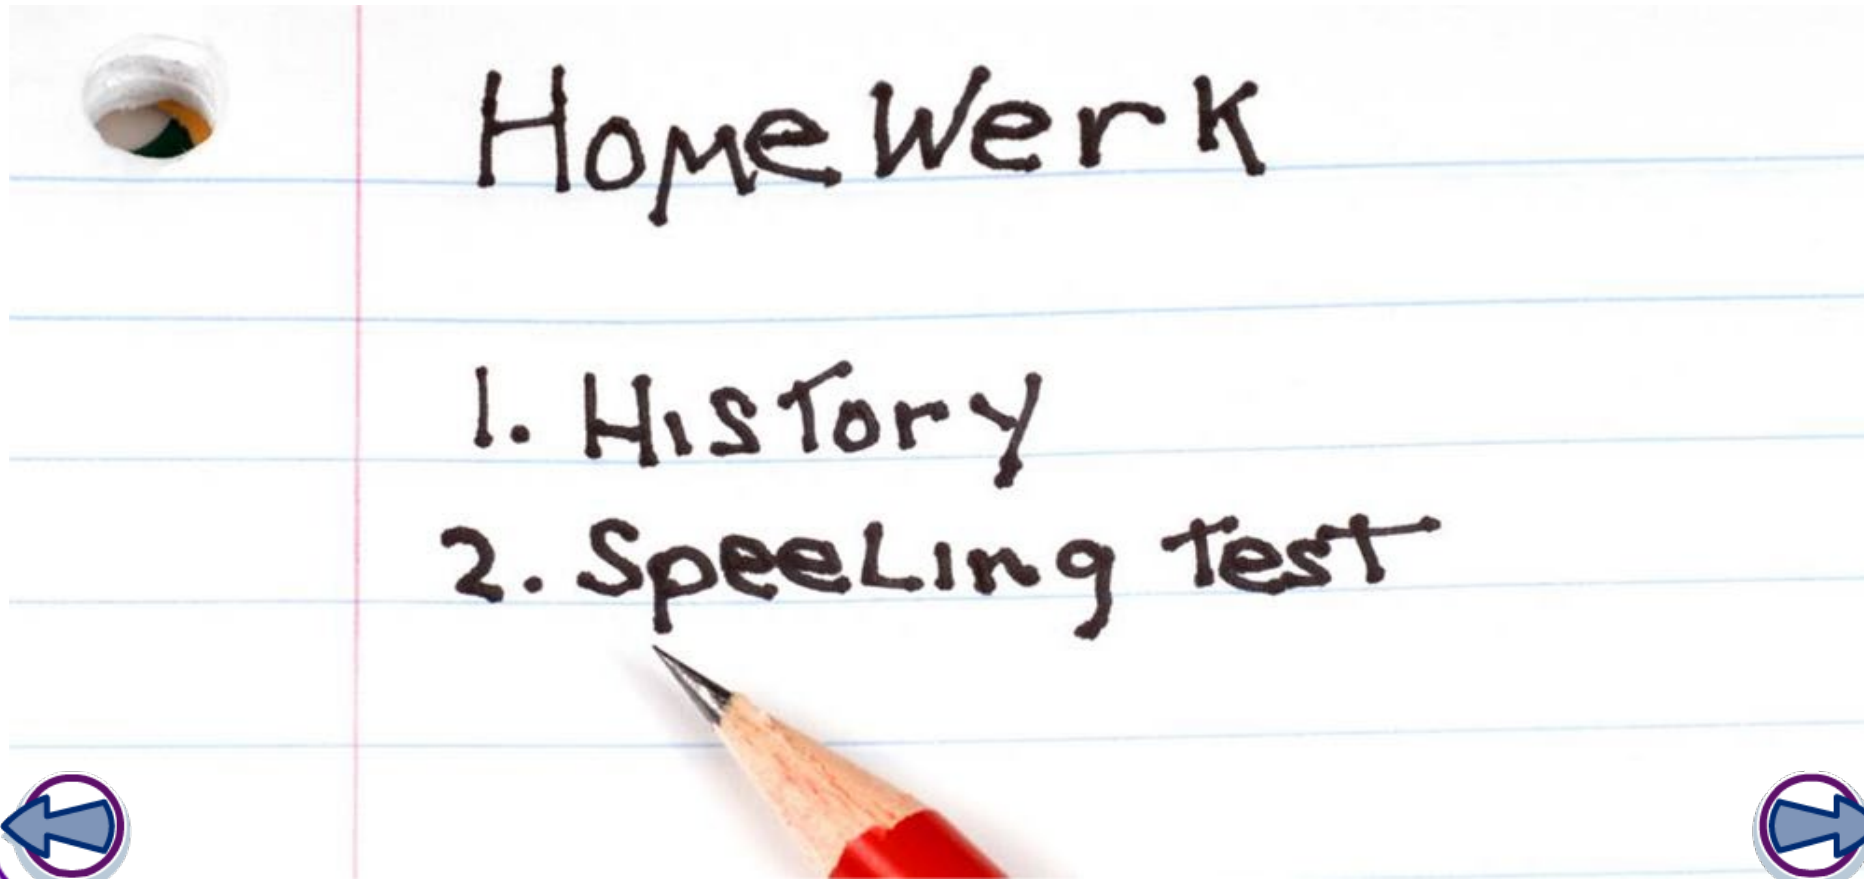 Home Werk
1. History
2. Speeling Test